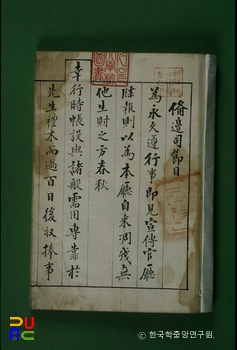 備邊司節目
為永久遵行事即見宣傳官廳
牒報則以為本廳自來凋殘無
他生財之方春秋
幸行時帳設與諸般需用專靠於
先生禮木而過百日後収捧事
한국학중앙연구원